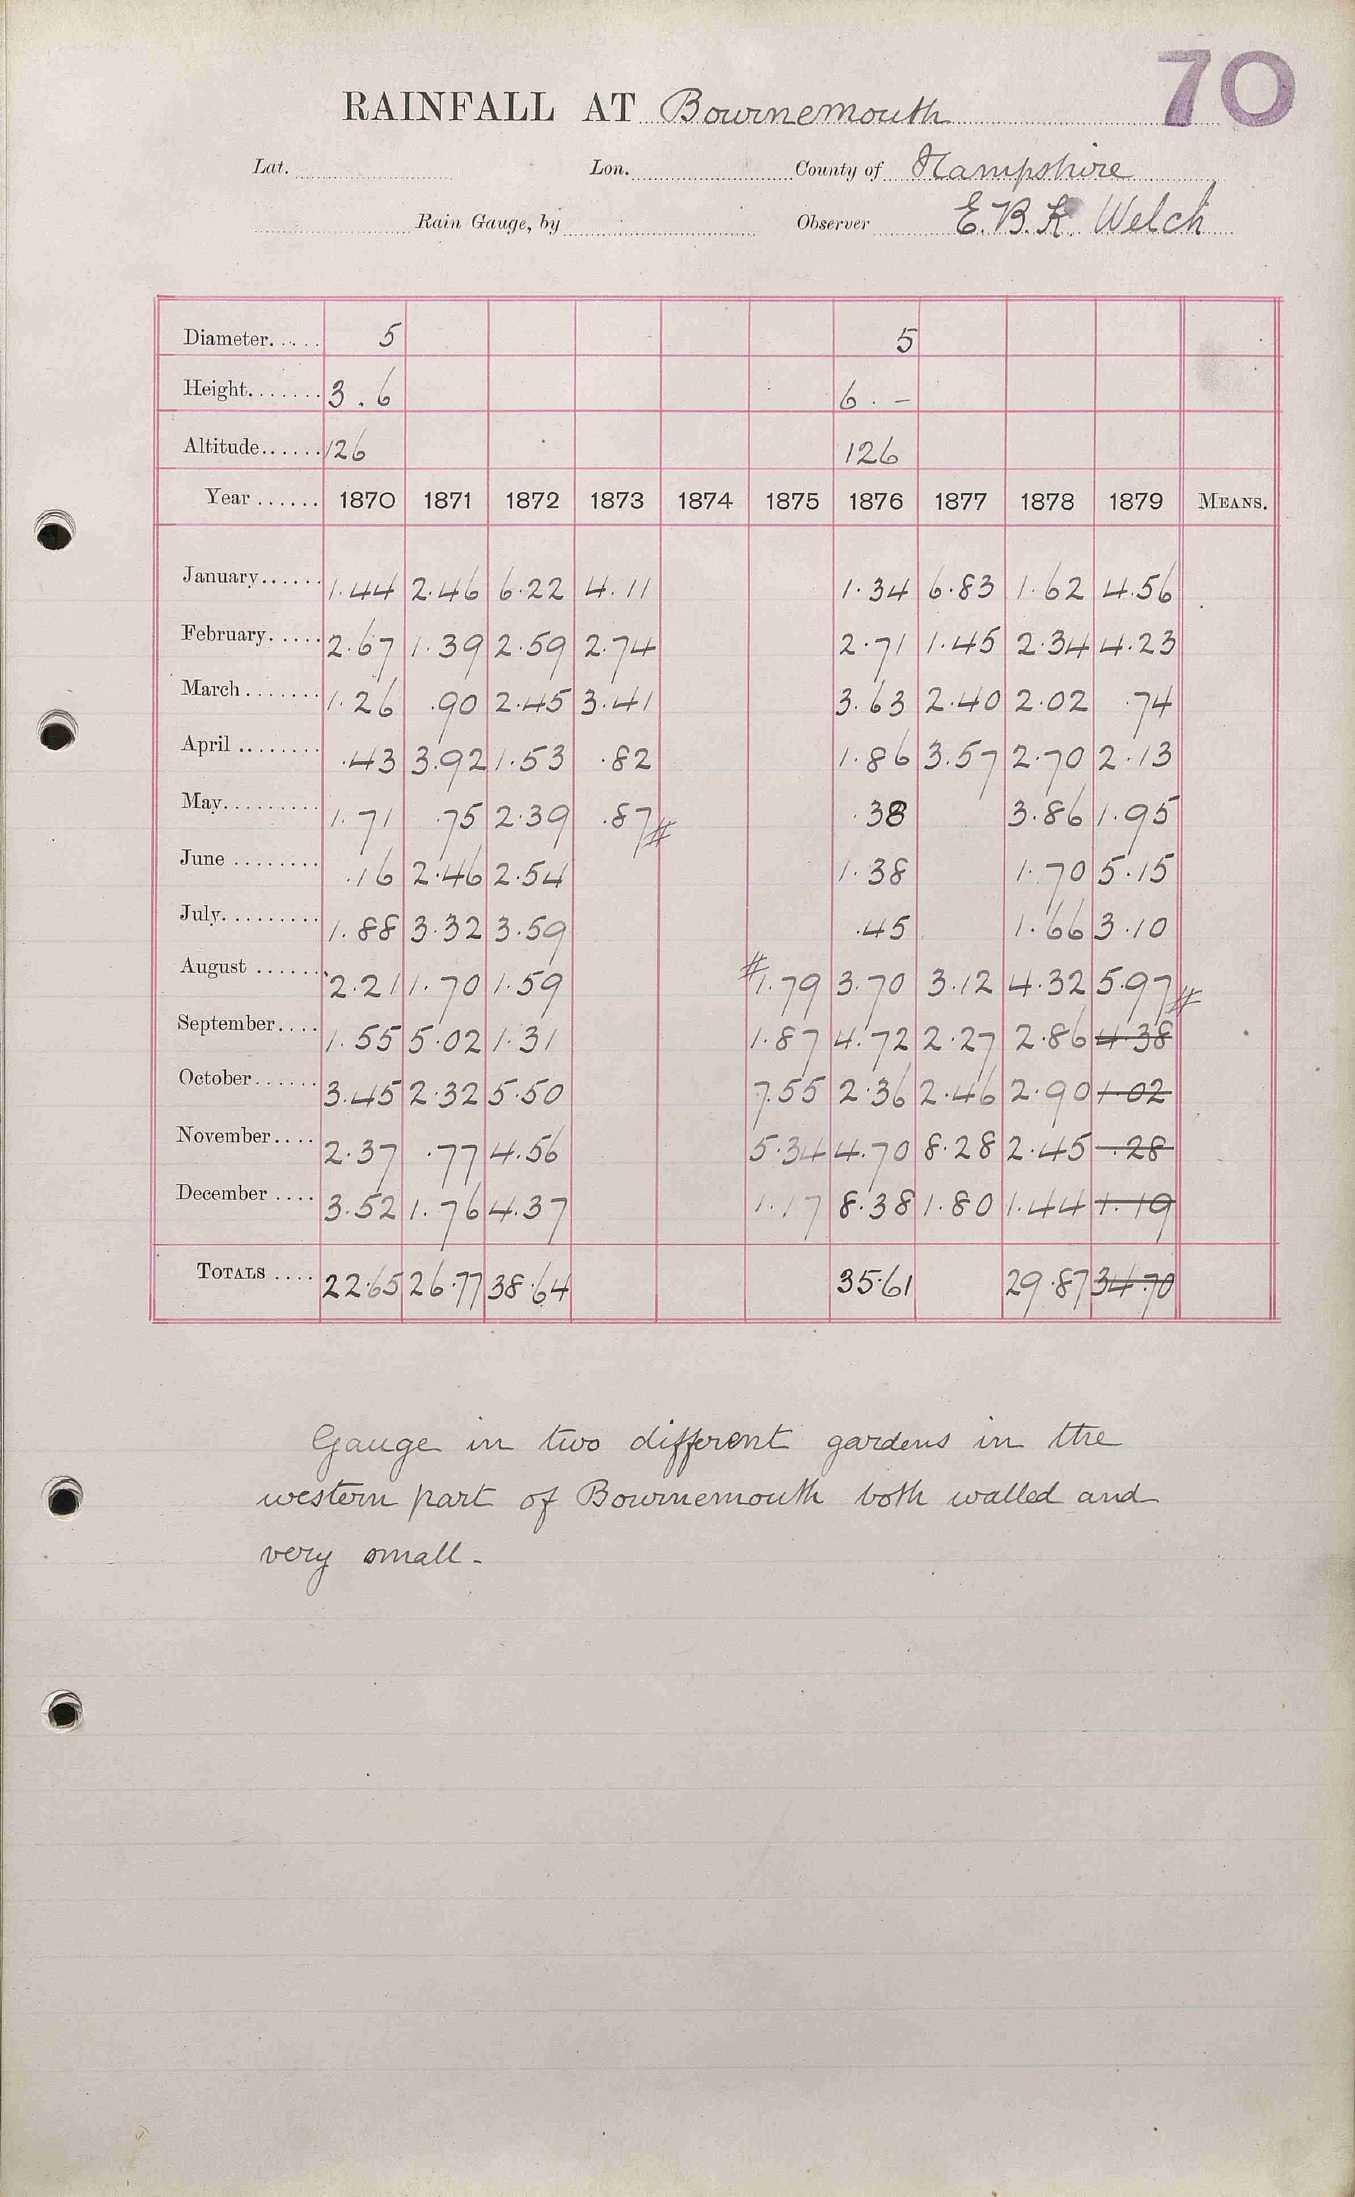 70
RAINFALL AT Bournemouth
Lat. Lon. County of Hampshire
Rain Gauge, by Observer E.B.K. Welch
Diameter 5 5
Height 3.6 6.-
Altitude 126 126
Year 1870 1871 1872 1873 1874 1875 1876 1877 1878 1879 MEANS.
January 1.44 2.46 6.22 4.11 1.34 6.83 1.62 4.56
February 2.67 1.39 2.59 2.74 2.71 1.45 2.34 4.23
March 1.26 .90 2.45 3.41 3.63 2.40 2.02 .74
April .43 3.92 1.53 .82 1.86 3.57 2.70 2.13
May 1.71 .75 2.39 .87 # .38 3.86 1.95
June .16 2.46 2.54 1.38 1.70 5.15
July 1.88 3.32 3.59 .45 1.66 3.10
August 2.21 1.70 1.59 # 1.79 3.70 3.12 4.32 5.97 #
September 1.55 5.02 1.31 1.87 4.72 2.27 2.86 4.38
October 3.45 2.32 5.50 7.55 2.36 2.46 2.90 1.02
November 2.37 .77 4.56 5.34 4.70 8.28 2.45 .28
December 3.52 1.76 4.37 1.17 8.38 1.80 1.44 1.19
TOTALS 22.65 26.77 38.64 35.61 29.87 34.70
Gauge in two different gardens in the
western part of Bournemouth both walled and
very small.-